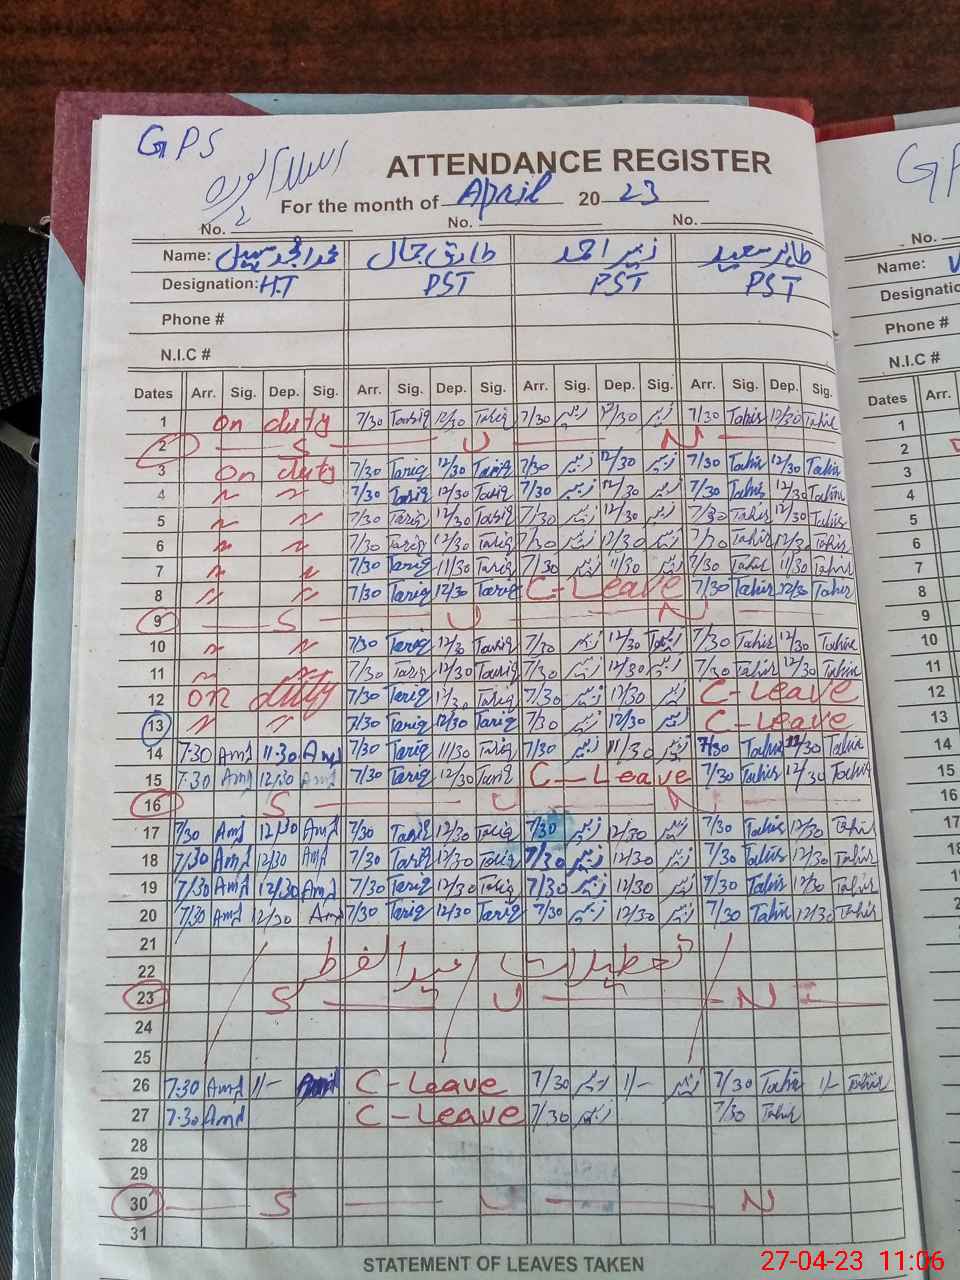 GPS
ATTENDANCE REGISTER
For the month of April 20 23
No. No. No.
Name: طارق جمال زبیر احمد طاہر سعید
Designation: H.T PST PST PST
Phone #
N.I.C #
Dates Arr. Sig. Dep. Sig. Arr. Sig. Dep. Sig. Arr. Sig. Dep. Sig. Arr. Sig. Dep. Sig.
1 On duty 7/30 Tariq 12/30 Tariq 7/30 زبیر 12/30 زبیر 7/30 Tahir 12/30 Tahir
2 S U N
3 On duty 7/30 Tariq 12/30 Tariq 7/30 زبیر 12/30 زبیر 7/30 Tahir 12/30 Tahir
4 " " 7/30 Tariq 12/30 Tariq 7/30 زبیر 12/30 زبیر 7/30 Tahir 12/30 Tahir
5 " " 7/30 Tariq 12/30 Tariq 7/30 زبیر 12/30 زبیر 7/30 Tahir 12/30 Tahir
6 " " 7/30 Tariq 12/30 Tariq 7/30 زبیر 12/30 زبیر 7/30 Tahir 12/30 Tahir
7 " " 7/30 Tariq 11/30 Tariq 7/30 زبیر 11/30 زبیر 7/30 Tahir 11/30 Tahir
8 " " 7/30 Tariq 12/30 Tariq C-Leave 7/30 Tahir 12/30 Tahir
9 S U N
10 " " 7/30 Tariq 12/30 Tariq 7/30 زبیر 12/30 زبیر 7/30 Tahir 12/30 Tahir
11 " " 7/30 Tariq 12/30 Tariq 7/30 زبیر 12/30 زبیر 7/30 Tahir 12/30 Tahir
12 On duty 7/30 Tariq Tariq 7/30 زبیر 12/30 زبیر C-Leave
13 " " 7/30 Tariq 12/30 Tariq 7/30 زبیر 12/30 زبیر C-Leave
14 7:30 Amd 11:30 Amd 7/30 Tariq 11/30 Tariq 7/30 زبیر 11/30 زبیر 7/30 Tahir 11/30 Tahir
15 7:30 Amd 12/30 Amd 7/30 Tariq 12/30 Tariq C-Leave 7/30 Tahir 12/30 Tahir
16 S U N
17 7/30 Amd 12/30 Amd 7/30 Tariq 12/30 Tariq 7/30 زبیر 12/30 زبیر 7/30 Tahir 12/30 Tahir
18 7/30 Amd 12/30 Amd 7/30 Tariq 12/30 Tariq 7/30 زبیر 12/30 زبیر 7/30 Tahir 12/30 Tahir
19 7/30 Amd 12/30 Amd 7/30 Tariq 12/30 Tariq 7/30 زبیر 12/30 زبیر 7/30 Tahir 12/30 Tahir
20 7/30 Amd 12/30 Amd 7/30 Tariq 12/30 Tariq 7/30 زبیر 12/30 زبیر 7/30 Tahir 12/30 Tahir
21
تعطیلات عید الفطر
22
23 S U N
24
25
26 7:30 Amd 1/- Amd C-Leave 7/30 زبیر 1/- زبیر 7/30 Tahir 1/- Tahir
27 7:30 Amd C-Leave 7/30 زبیر 7/30 Tahir
28
29
30 S U N
31
STATEMENT OF LEAVES TAKEN
No.
Name:
Phone #
N.I.C #
Dates Arr.
1
2
3
4
5
6
7
8
9
10
11
12
13
14
15
16
27-04-23 11:06